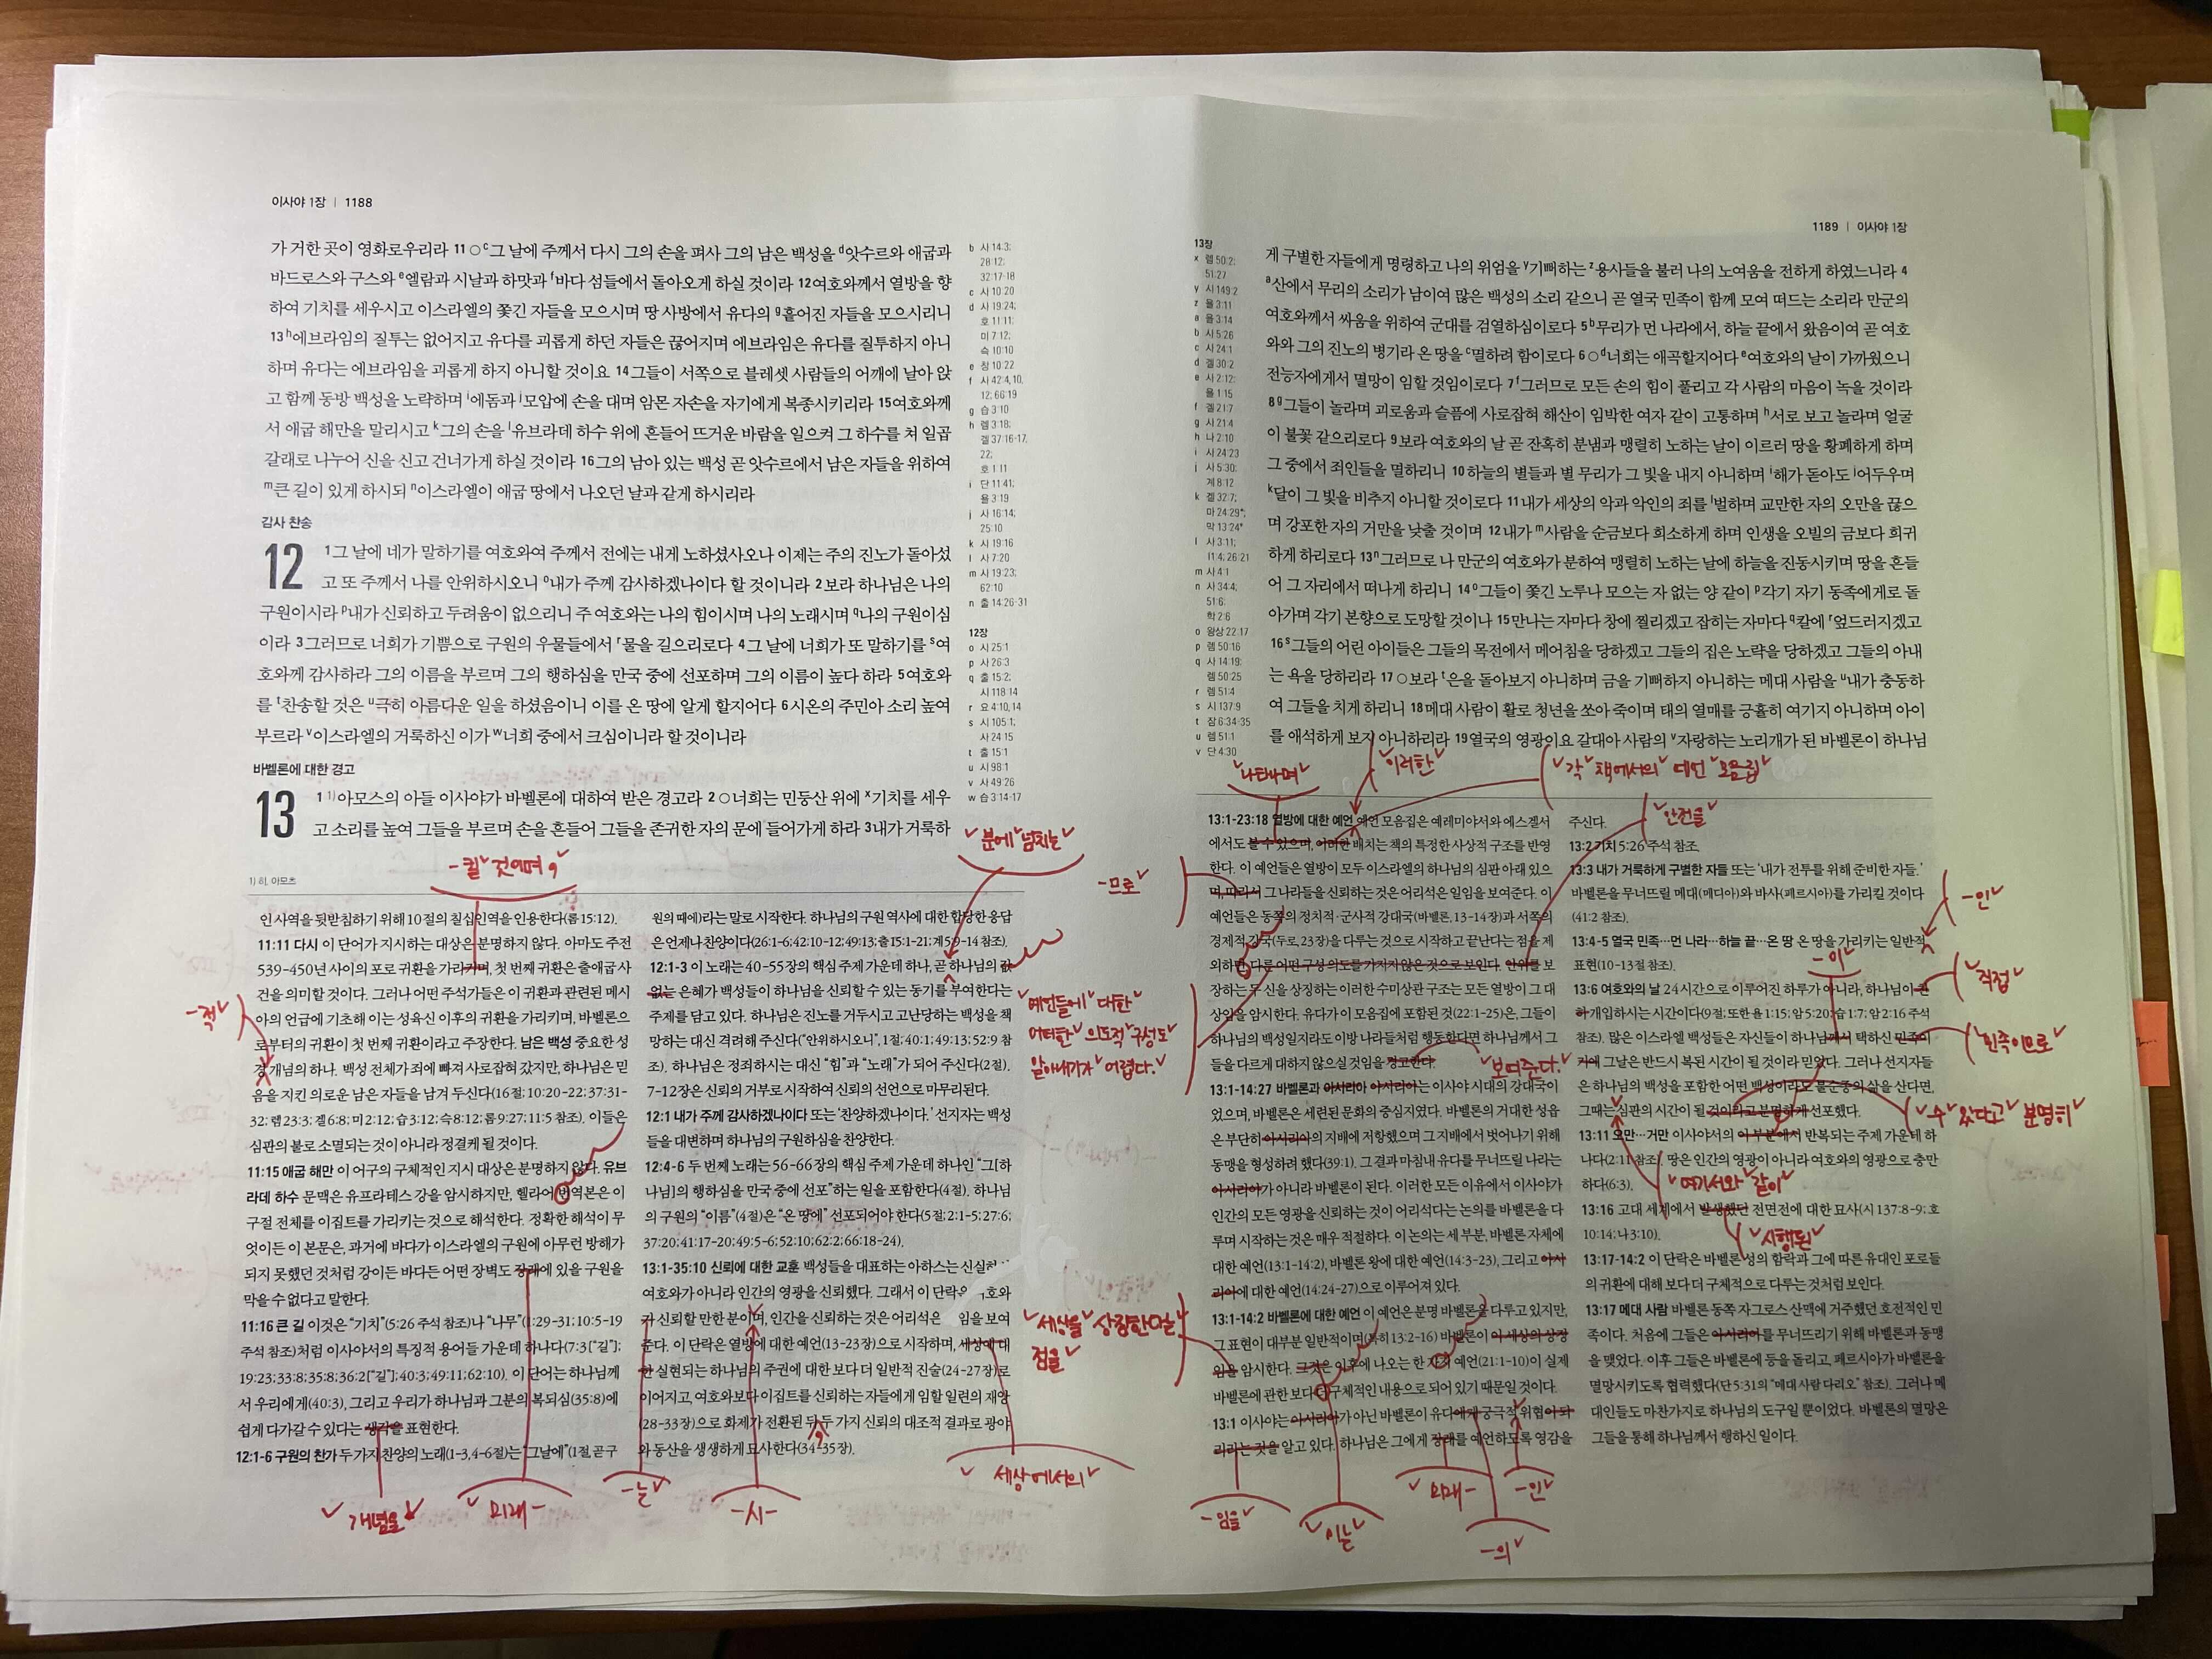 이사야 1장 | 1188
가 거한 곳이 영화로우리라 11 ○c그 날에 주께서 다시 그의 손을 펴사 그의 남은 백성을 d앗수르와 애굽과
바드로스와 구스와 e엘람과 시날과 하맛과 f바다 섬들에서 돌아오게 하실 것이라 12여호와께서 열방을 향
하여 기치를 세우시고 이스라엘의 쫓긴 자들을 모으시며 땅 사방에서 유다의 g흩어진 자들을 모으시리니
13h에브라임의 질투는 없어지고 유다를 괴롭게 하던 자들은 끊어지며 에브라임은 유다를 질투하지 아니
하며 유다는 에브라임을 괴롭게 하지 아니할 것이요 14그들이 서쪽으로 블레셋 사람들의 어깨에 날아 앉
고 함께 동방 백성을 노략하며 i에돔과 j모압에 손을 대며 암몬 자손을 자기에게 복종시키리라 15여호와께
서 애굽 해만을 말리시고 k그의 손을 l유브라데 하수 위에 흔들어 뜨거운 바람을 일으켜 그 하수를 쳐 일곱
갈래로 나누어 신을 신고 건너가게 하실 것이라 16그의 남아 있는 백성 곧 앗수르에서 남은 자들을 위하여
m큰 길이 있게 하시되 n이스라엘이 애굽 땅에서 나오던 날과 같게 하시리라
감사 찬송
12
1그 날에 네가 말하기를 여호와여 주께서 전에는 내게 노하셨사오나 이제는 주의 진노가 돌아섰
고 또 주께서 나를 안위하시오니 o내가 주께 감사하겠나이다 할 것이니라 2보라 하나님은 나의
구원이시라 p내가 신뢰하고 두려움이 없으리니 주 여호와는 나의 힘이시며 나의 노래시며 q나의 구원이심
이라 3그러므로 너희가 기쁨으로 구원의 우물들에서 r물을 길으리로다 4그 날에 너희가 또 말하기를 s여
호와께 감사하라 그의 이름을 부르며 그의 행하심을 만국 중에 선포하며 그의 이름이 높다 하라 5여호와
를 t찬송할 것은 u극히 아름다운 일을 하셨음이니 이를 온 땅에 알게 할지어다 6시온의 주민아 소리 높여
부르라 v이스라엘의 거룩하신 이가 w너희 중에서 크심이니라 할 것이니라
바벨론에 대한 경고
13
1 1)아모스의 아들 이사야가 바벨론에 대하여 받은 경고라 2 ○너희는 민둥산 위에 x기치를 세우
고 소리를 높여 그들을 부르며 손을 흔들어 그들을 존귀한 자의 문에 들어가게 하라 3내가 거룩하
b 사 14:3;
28:12;
32:17-18
c 시 10:20
d 사 19:24;
호 11:11;
미 7:12;
슥 10:10
e 창 10:22
f 사 42:4,10,
12; 66:19
g 습 3:10
h 렘 3:18;
겔 37:16-17,
22;
호 1:11
i 단 11:41;
욜 3:19
j 사 16:14;
25:10
k 시 19:16
l 사 7:20
m 시 19:23;
62:10
n 출 14:26-31
12장
o 시 25:1
p 사 26:3
q 출 15:2;
시 118:14
r 요 4:10,14
s 시 105:1;
사 24:15
t 출 15:1
u 시 98:1
v 사 49:26
w 습 3:14-17
1) 히, 아모츠
-킬 것이며,
분에 넘치는
인 사역을 뒷받침하기 위해 10절의 칠십인역을 인용한다(롬 15:12).
11:11 다시 이 단어가 지시하는 대상은 분명하지 않다. 아마도 주전
539-450년 사이의 포로 귀환을 가리키며, 첫 번째 귀환은 출애굽 사
건을 의미할 것이다. 그러나 어떤 주석가들은 이 귀환과 관련된 메시
아의 언급에 기초해 이는 성육신 이후의 귀환을 가리키며, 바벨론으
로부터의 귀환이 첫 번째 귀환이라고 주장한다. 남은 백성 중요한 성
경 개념의 하나. 백성 전체가 죄에 빠져 사로잡혀 갔지만, 하나님은 믿
음을 지킨 의로운 남은 자들을 남겨 두신다(16절; 10:20-22; 37:31-
32; 렘 23:3; 겔 6:8; 미 2:12; 습 3:12; 슥 8:12; 롬 9:27; 11:5 참조). 이들은
심판의 불로 소멸되는 것이 아니라 정결케 될 것이다.
11:15 애굽 해만 이 어구의 구체적인 지시 대상은 분명하지 않다. 유브
라데 하수 문맥은 유프라테스 강을 암시하지만, 헬라어 번역본은 이
구절 전체를 이집트를 가리키는 것으로 해석한다. 정확한 해석이 무
엇이든 이 본문은, 과거에 바다가 이스라엘의 구원에 아무런 방해가
되지 못했던 것처럼 강이든 바다든 어떤 장벽도 장래에 있을 구원을
막을 수 없다고 말한다.
11:16 큰 길 이것은 “기치”(5:26 주석 참조)나 “나무”(1:29-31; 10:5-19
주석 참조)처럼 이사야서의 특징적 용어들 가운데 하나다(7:3[“길”];
19:23; 33:8; 35:8; 36:2[“길”]; 40:3; 49:11; 62:10). 이 단어는 하나님께
서 우리에게(40:3), 그리고 우리가 하나님과 그분의 복되심(35:8)에
쉽게 다가갈 수 있다는 생각을 표현한다.
12:1-6 구원의 찬가 두 가지 찬양의 노래(1-3, 4-6절)는 “그날에”(1절, 곧 구
-적
개념을
미래-
원의 때에)라는 말로 시작한다. 하나님의 구원 역사에 대한 합당한 응답
은 언제나 찬양이다(26:1-6; 42:10-12; 49:13; 출 15:1-21; 계 5:9-14 참조).
12:1-3 이 노래는 40-55장의 핵심 주제 가운데 하나, 곧 하나님의 값
없는 은혜가 백성들이 하나님을 신뢰할 수 있는 동기를 부여한다는
주제를 담고 있다. 하나님은 진노를 거두시고 고난당하는 백성을 책
망하는 대신 격려해 주신다(“안위하시오니”, 1절; 40:1; 49:13; 52:9 참
조). 하나님은 정죄하시는 대신 “힘”과 “노래”가 되어 주신다(2절).
7-12장은 신뢰의 거부로 시작하여 신뢰의 선언으로 마무리된다.
12:1 내가 주께 감사하겠나이다 또는 ‘찬양하겠나이다.’ 선지자는 백성
들을 대변하며 하나님의 구원하심을 찬양한다.
12:4-6 두 번째 노래는 56-66장의 핵심 주제 가운데 하나인 “그[하
나님]의 행하심을 만국 중에 선포”하는 일을 포함한다(4절). 하나님
의 구원의 “이름”(4절)은 “온 땅에” 선포되어야 한다(5절; 2:1-5; 27:6;
37:20; 41:17-20; 49:5-6; 52:10; 62:2; 66:18-24).
13:1-35:10 신뢰에 대한 교훈 백성들을 대표하는 아하스는 신실하
여호와가 아니라 인간의 영광을 신뢰했다. 그래서 이 단락은 호와
가 신뢰할 만한 분이며, 인간을 신뢰하는 것은 어리석은 임을 보여
준다. 이 단락은 열방에 대한 예언(13-23장)으로 시작하며, 세상에 대
한 실현되는 하나님의 주권에 대한 보다 더 일반적 진술(24-27장)로
이어지고, 여호와보다 이집트를 신뢰하는 자들에게 임할 일련의 재앙
(28-33장)으로 화제가 전환된 뒤 두 가지 신뢰의 대조적 결과로 광야
와 동산을 생생하게 묘사한다(34-35장).
-는
-시-
세상에서의
1189 | 이사야 1장
13장
x 렘 50:2;
51:27
y 시 149:2
z 욜 3:11
a 욜 3:14
b 시 5:26
c 시 24:1
d 겔 30:2
e 시 2:12;
욜 1:15
f 겔 21:7
g 시 21:4
h 나 2:10
i 사 24:23
j 사 5:30;
계 8:12
k 겔 32:7;
마 24:29*;
막 13:24*
l 사 3:11;
11:4; 26:21
m 사 4:1
n 사 34:4;
51:6;
학 2:6
o 왕상 22:17
p 렘 50:16
q 사 14:19;
렘 50:25
r 렘 51:4
s 시 137:9
t 잠 6:34-35
u 렘 51:1
v 단 4:30
게 구별한 자들에게 명령하고 나의 위엄을 y기뻐하는 z용사들을 불러 나의 노여움을 전하게 하였느니라 4
a산에서 무리의 소리가 남이여 많은 백성의 소리 같으니 곧 열국 민족이 함께 모여 떠드는 소리라 만군의
여호와께서 싸움을 위하여 군대를 검열하심이로다 5b무리가 먼 나라에서, 하늘 끝에서 왔음이여 곧 여호
와와 그의 진노의 병기라 온 땅을 c멸하려 함이로다 6 ○d너희는 애곡할지어다 e여호와의 날이 가까웠으니
전능자에게서 멸망이 임할 것임이로다 7f그러므로 모든 손의 힘이 풀리고 각 사람의 마음이 녹을 것이라
8g그들이 놀라며 괴로움과 슬픔에 사로잡혀 해산이 임박한 여자 같이 고통하며 h서로 보고 놀라며 얼굴
이 불꽃 같으리로다 9보라 여호와의 날 곧 잔혹히 분냄과 맹렬히 노하는 날이 이르러 땅을 황폐하게 하며
그 중에서 죄인들을 멸하리니 10하늘의 별들과 별 무리가 그 빛을 내지 아니하며 i해가 돋아도 j어두우며
k달이 그 빛을 비추지 아니할 것이로다 11내가 세상의 악과 악인의 죄를 l벌하며 교만한 자의 오만을 끊으
며 강포한 자의 거만을 낮출 것이며 12내가 m사람을 순금보다 희소하게 하며 인생을 오빌의 금보다 희귀
하게 하리로다 13n그러므로 나 만군의 여호와가 분하여 맹렬히 노하는 날에 하늘을 진동시키며 땅을 흔들
어 그 자리에서 떠나게 하리니 14o그들이 쫓긴 노루나 모으는 자 없는 양 같이 p각기 자기 동족에게로 돌
아가며 각기 본향으로 도망할 것이나 15만나는 자마다 창에 찔리겠고 잡히는 자마다 q칼에 r엎드러지겠고
16s그들의 어린 아이들은 그들의 목전에서 메어침을 당하겠고 그들의 집은 노략을 당하겠고 그들의 아내
는 욕을 당하리라 17 ○보라 t은을 돌아보지 아니하며 금을 기뻐하지 아니하는 메대 사람을 u내가 충동하
여 그들을 치게 하리니 18메대 사람이 활로 청년을 쏘아 죽이며 태의 열매를 긍휼히 여기지 아니하며 아이
를 애석하게 보지 아니하리라 19열국의 영광이요 갈대아 사람의 v자랑하는 노리개가 된 바벨론이 하나님
나타나며
이러한
각 책에서의 예언 모음집
안전을
13:1-23:18 열방에 대한 예언 예언 모음집은 예레미야서와 에스겔서
에서도 볼 수 있으며, 이러한 배치는 책의 특정한 사상적 구조를 반영
한다. 이 예언들은 열방이 모두 이스라엘의 하나님의 심판 아래 있으
며, 따라서 그 나라들을 신뢰하는 것은 어리석은 일임을 보여준다. 이
예언들은 동쪽의 정치적·군사적 강대국(바벨론, 13-14장)과 서쪽의
경제적 강국(두로, 23장)을 다루는 것으로 시작하고 끝난다는 점을 제
외하면, 다른 어떤 구성 의도를 가지지 않은 것으로 보인다. 안위를 보
장하는 두 신을 상징하는 이러한 수미상관 구조는 모든 열방이 그 대
상임을 암시한다. 유다가 이 모음집에 포함된 것(22:1-25)은, 그들이
하나님의 백성일지라도 이방 나라들처럼 행동한다면 하나님께서 그
들을 다르게 대하지 않으실 것임을 경고한다.
13:1-14:27 바벨론과 아시리아 아시리아는 이사야 시대의 강대국이
었으며, 바벨론은 세련된 문화의 중심지였다. 바벨론의 거대한 성읍
은 부단히 아시리아의 지배에 저항했으며 그 지배에서 벗어나기 위해
동맹을 형성하려 했다(39:1). 그 결과 마침내 유다를 무너뜨릴 나라는
아시리아가 아니라 바벨론이 된다. 이러한 모든 이유에서 이사야가
인간의 모든 영광을 신뢰하는 것이 어리석다는 논의를 바벨론을 다
루며 시작하는 것은 매우 적절하다. 이 논의는 세 부분, 바벨론 자체에
대한 예언(13:1-14:2), 바벨론 왕에 대한 예언(14:3-23), 그리고 아시
리아에 대한 예언(14:24-27)으로 이루어져 있다.
13:1-14:2 바벨론에 대한 예언 이 예언은 분명 바벨론을 다루고 있지만,
그 표현이 대부분 일반적이며(특히 13:2-16) 바벨론이 이 세상의 상징
임을 암시한다. 그것은 이후에 나오는 한 가지 예언(21:1-10)이 실제
바벨론에 관한 보다 더 구체적인 내용으로 되어 있기 때문일 것이다.
13:1 이사야는 아시리아가 아닌 바벨론이 유다에게 궁극적 위협이 되
리라는 것을 알고 있다. 하나님은 그에게 장래를 예언하도록 영감을
-므로
예언들에 대한
어떠한 의도적 구성도
알아내기가 어렵다.
보여준다.
세상을 상징한다는
점을
-임을
이는
미래-
-의
-인
주신다.
13:2 기치 5:26 주석 참조.
13:3 내가 거룩하게 구별한 자들 또는 ‘내가 전투를 위해 준비한 자들.’
바벨론을 무너뜨릴 메대(메디아)와 바사(페르시아)를 가리킬 것이다
(41:2 참조).
13:4-5 열국 민족…먼 나라…하늘 끝…온 땅 온 땅을 가리키는 일반적
표현(10-13절 참조).
13:6 여호와의 날 24시간으로 이루어진 하루가 아니라, 하나님이 친
히 개입하시는 시간이다(9절; 또한 욜 1:15; 암 5:20; 습 1:7; 암 2:16 주석
참조). 많은 이스라엘 백성들은 자신들이 하나님께서 택하신 민족이
기에 그날은 반드시 복된 시간이 될 것이라 믿었다. 그러나 선지자들
은 하나님의 백성을 포함한 어떤 백성이라도 불순종의 삶을 산다면,
그때는 심판의 시간이 될 것이라고 분명하게 선포했다.
13:11 오만…거만 이사야서의 이 부분에서 반복되는 주제 가운데 하
나다(2:11 참조). 땅은 인간의 영광이 아니라 여호와의 영광으로 충만
하다(6:3).
13:16 고대 세계에서 발생했던 전면전에 대한 묘사(시 137:8-9; 호
10:14; 나 3:10).
13:17-14:2 이 단락은 바벨론 성의 함락과 그에 따른 유대인 포로들
의 귀환에 대해 보다 더 구체적으로 다루는 것처럼 보인다.
13:17 메대 사람 바벨론 동쪽 자그로스 산맥에 거주했던 호전적인 민
족이다. 처음에 그들은 아시리아를 무너뜨리기 위해 바벨론과 동맹
을 맺었다. 이후 그들은 바벨론에 등을 돌리고, 페르시아가 바벨론을
멸망시키도록 협력했다(단 5:31의 “메대 사람 다리오” 참조). 그러나 메
대인들도 마찬가지로 하나님의 도구일 뿐이었다. 바벨론의 멸망은
그들을 통해 하나님께서 행하신 일이다.
-인
-이
직접
민족이므로
수 있다고 분명히
여기서와 같이
시행된